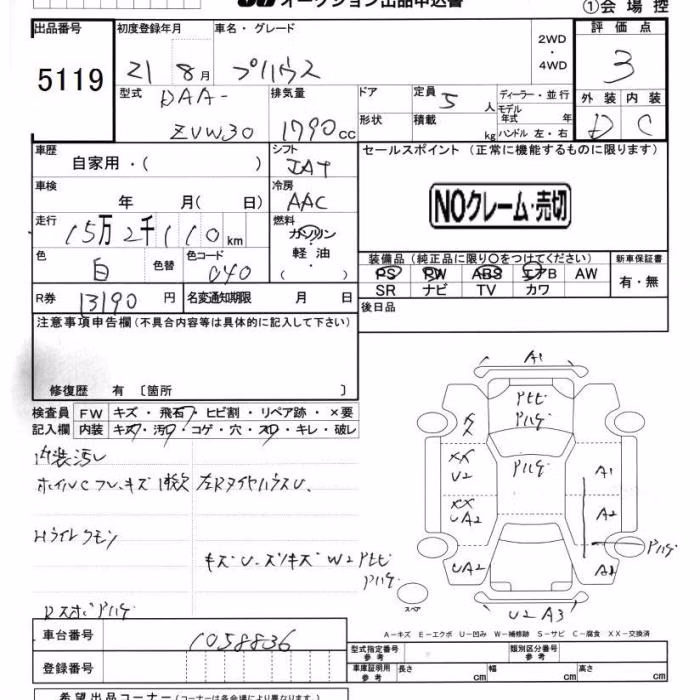 オークション出品申込書
①会場控
出品番号
5119
初度登録年月
21 8月
車名・グレード
プリウス
2WD
・
4WD
評価点
3
型式
DAA-
ZVW30
排気量
1790cc
ドア
形状
定員 5人
積載 kg
ディーラー・並行
モデル年式 年
ハンドル 左・右
外装 内装
D C
車歴
自家用・( )
シフト
IAT
セールスポイント (正常に機能するものに限ります)
NOクレーム・売切
車検
年 月(日)
冷房
AAC
走行
15万2千110km
燃料
ガソリン
軽油
色 白 色替
色コード 040
装備品(純正品に限り○をつけてください)
PS PW ABS エアB AW
SR ナビ TV カワ
新車保証書
有・無
R券 13190円
名変通知期限 月 日
後日品
注意事項申告欄(不具合内容等は具体的に記入して下さい)
修復歴 有 〔箇所 〕
検査員記入欄
FW キズ・飛石・ヒビ割・リペア跡・×要
内装 キズ・汚・コゲ・穴・スレ・キレ・破レ
内装汚レ
A1
A1
A2
XX
U2
XX
UA2
UA2
U2 A3
スペア
A-キズ E-エクボ U-凹み W-補修跡 S-サビ C-腐食 XX-交換済
車台番号
1058836
登録番号
型式指定番号 参考
類別区分番号 参考
車庫証明用 参考
長さ cm 幅 cm 高さ cm
希望出品コーナー(コーナーは各会場により異なります)